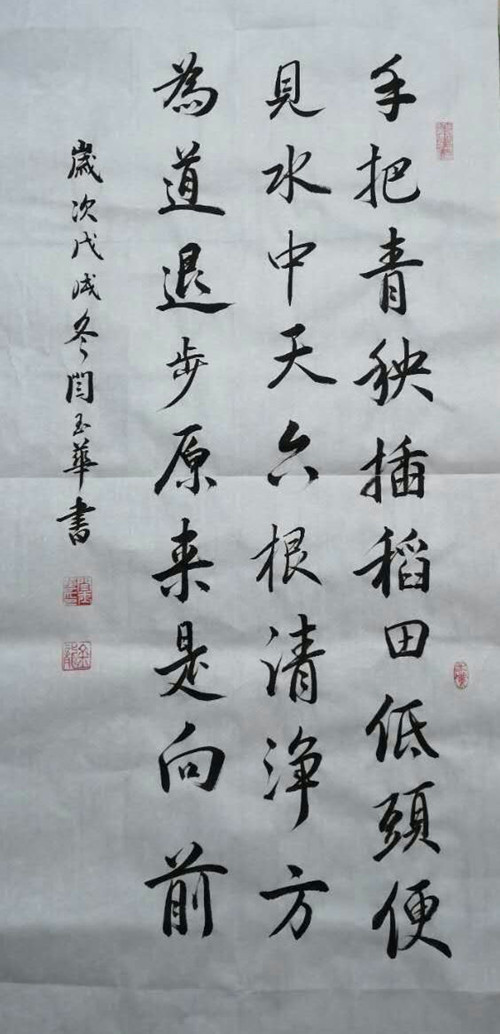 手把青秧插稻田低頭便
見水中天六根清淨方
為道退步原来是向前
歲次戊戌冬閆玉華書